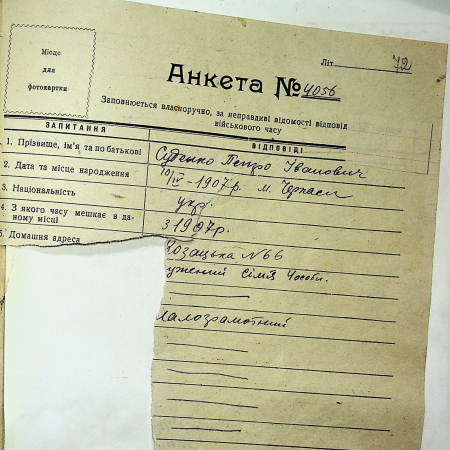 Місце
для
фотокартки
Літ. 72
Анкета № 4056
Заповнюється власноручно, за неправдиві відомості відповід
військового часу
ЗАПИТАННЯ
ВІДПОВІДІ
1. Прізвище, ім'я та по батькові
Петро Іванович
2. Дата та місце народження
10/IV - 1907 р. м. Черкаси
3. Національність
укр.
4. З якого часу мешкає в да-
ному місці
з 1907 р.
5. Домашня адреса
Козацька № 66
ужений сімя
малограмотний